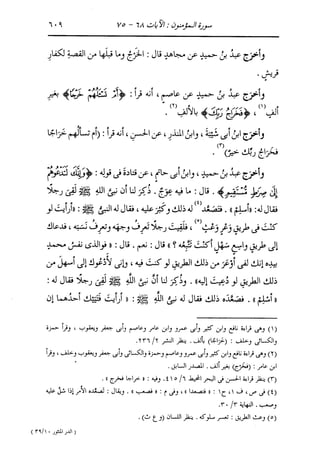 سورة المؤمنون : الآيات ٦٨ - ٧٥ ٦٠٩
وأخرج عبدُ بنُ حميدٍ عن مجاهدٍ قال : الخَرْجُ وما قبلَها من القصةِ لكفارِ
قريشٍ .
وأخرج عبدُ بنُ حميدٍ عن عاصمٍ ، أنه قرأ : ﴿أَمْ تَسْـَٔلُهُمْ خَرْجًا﴾ بغيرِ
ألفٍ(١) ، ﴿فَخَرَاجُ رَبِّكَ﴾ بالألفِ(٢) .
وأخرج ابنُ أبى شيبةَ ، وابنُ المنذرِ ، عن الحسنِ ، أنه قرأ : ( أم تسألُهم خَرَاجًا
فخَرَاجُ ربِّك خيرٌ)(٣) .
وأخرج عبدُ بنُ حميدٍ ، وابنُ أبى حاتمٍ ، عن قتادةَ فى قولِه : ﴿وَإِنَّكَ لَتَدْعُوهُمْ
إِلَىٰ صِرَٰطٍ مُّسْتَقِيمٍ﴾ . قال : ما فيه عِوَجٌ . ذُكِرَ لنا أن نبىَّ اللهِ ﷺ لَقِى رجلًا
فقال له : «أسلِمْ» . فتصَعَّد(٤) له ذلك وكبُر عليه ، فقال له النبىُّ ﷺ : «أرأيتَ لو
كنتَ فى طريقٍ وَعْرٍ وَعْثٍ(٥) ، فلَقِيتَ رجلًا تعرِفُ وجهَه وتعرِفُ نسَبَه ، فدعاك
إلى طريقٍ واسعٍ سهلٍ أكنتَ تتَّبِعُه ؟» قال : نعم . قال : «فوالذى نفسُ محمدٍ
بيدِه إنك لفى أوْعَرَ من ذلك الطريقِ لو كنتَ فيه ، وإنى لأدعُوك إلى أسهلَ من
ذلك الطريقِ لو دُعِيتَ إليه» . وذُكِرَ لنا أنَّ نبىَّ اللهِ ﷺ لَقِى رجلًا فقال له :
«أسلِمْ» . فصَعَّده ذلك فقال له نبىُّ اللهِ ﷺ : «أرأيتَ فَتَيَيْك أحدُهما إن
(١) وهى قراءة نافع وابن كثير وأبى عمرو وابن عامر وعاصم وأبى جعفر ويعقوب ، وقرأ حمزة
والكسائى وخلف : (خراجا) بألف . ينظر النشر ٢/ ٢٣٦ .
(٢) وهى قراءة نافع وابن كثير وأبى عمرو وعاصم وحمزة والكسائى وأبى جعفر ويعقوب وخلف ، وقرأ
ابن عامر : (فخرج) بغير ألف . المصدر السابق .
(٣) ينظر قراءة الحسن فى البحر المحيط ٦/ ٤١٥ . وفيه : «خراجا فخرج» .
(٤) فى ص ، ف ١ ، ح ١ : «فتصعدا» ، وفى م : «فصعب» . ويقال : تصعَّده الأمر إذا شق عليه
وصعب . النهاية ٣/ ٣٠ .
(٥) وعث الطريق : تعسر سلوكه . ينظر اللسان (و ع ث) .
( الدر المنثور ٣٩/١٠ )